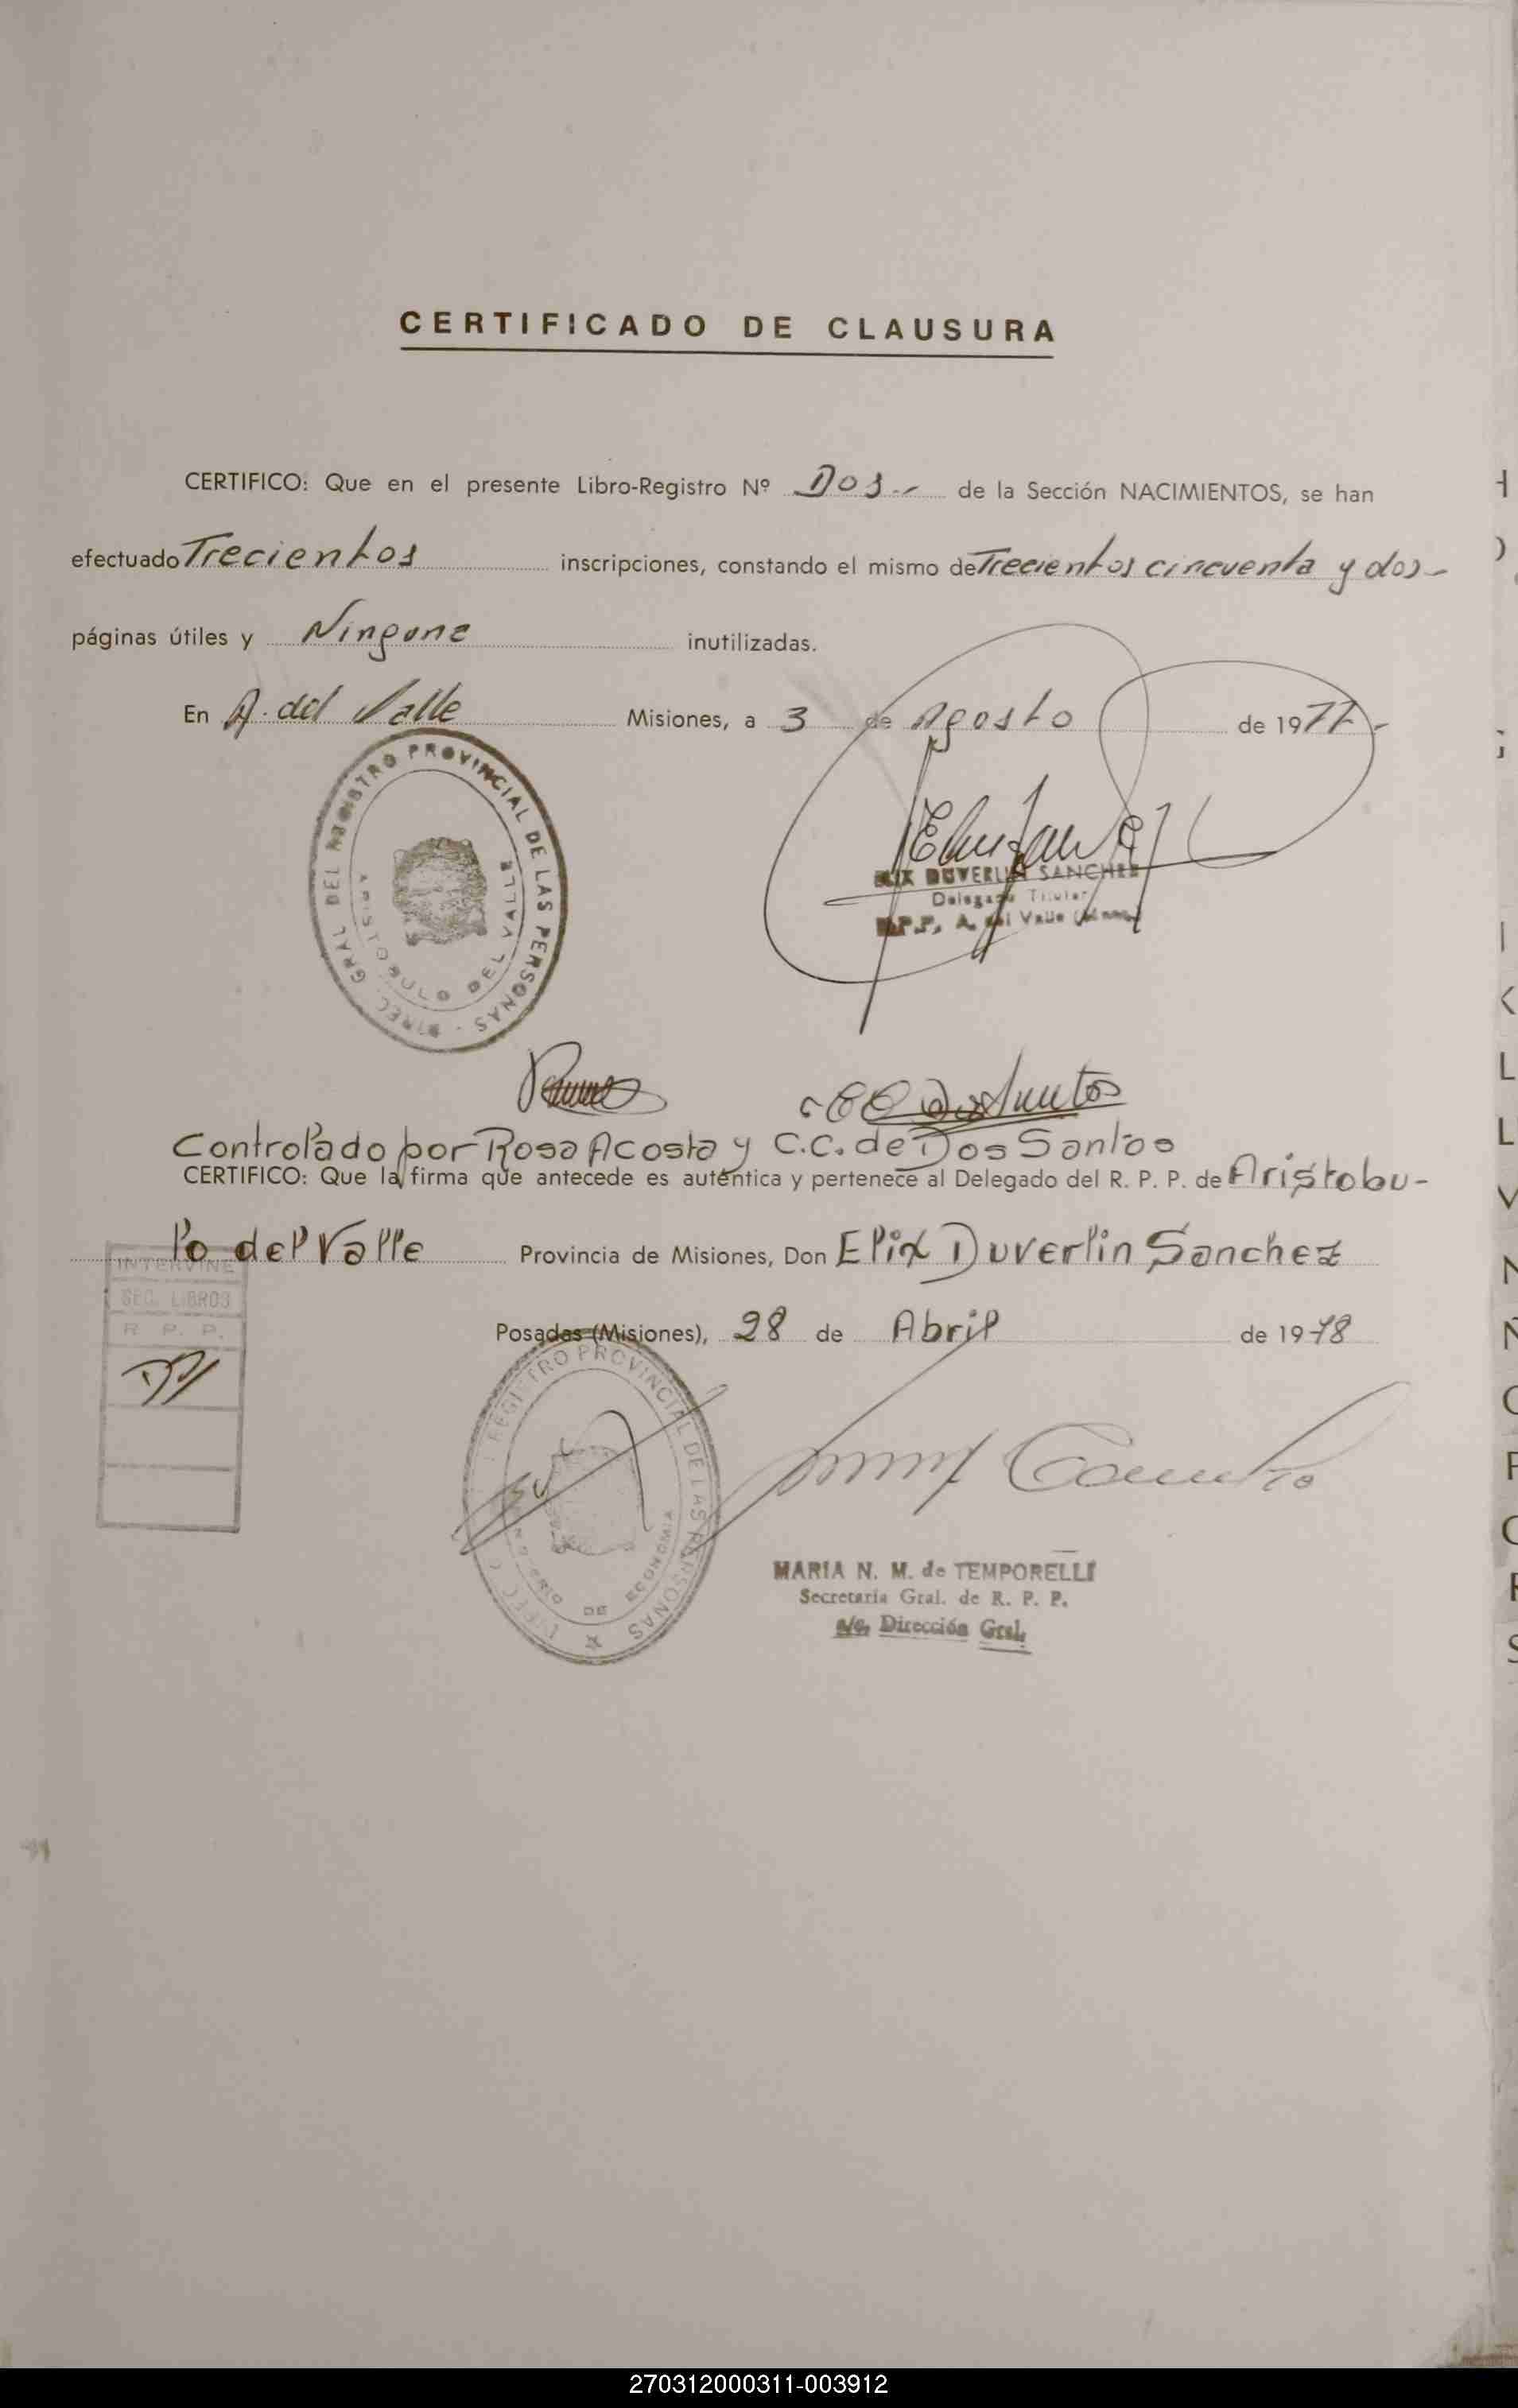 CERTIFICADO DE CLAUSURA
CERTIFICO: Que en el presente Libro-Registro Nº Dos.- de la Sección NACIMIENTOS, se han
efectuado Trecientos inscripciones, constando el mismo de Trecientos cincuenta y dos-
páginas útiles y Ninguna inutilizadas.
En A. del Valle Misiones, a 3 de Agosto de 1977.-
DIREC. GRAL DEL REGISTRO PROVINCIAL DE LAS PERSONAS -
ARISTOBULO DEL VALLE
ELIX DUVERLIN SANCHEZ
Delegado Titular
R.P.P. A. del Valle
Controlado por Rosa Acosta y C.C. de Dos Santos
CERTIFICO: Que la firma que antecede es auténtica y pertenece al Delegado del R. P. P. de Aristobu-
lo del Valle Provincia de Misiones, Don Elix Duverlin Sanchez
INTERVINE
SEC. LIBROS
R. P. P.
Posadas (Misiones), 28 de Abril de 1978
REGISTRO PROVINCIAL DE LAS PERSONAS
DE ECONOMIA
MARIA N. M. de TEMPORELLI
Secretaria Gral. de R. P. P.
a/c. Dirección Gral.
H
I
K
L
L
V
N
Ñ
O
P
Q
R
S
270312000311-003912